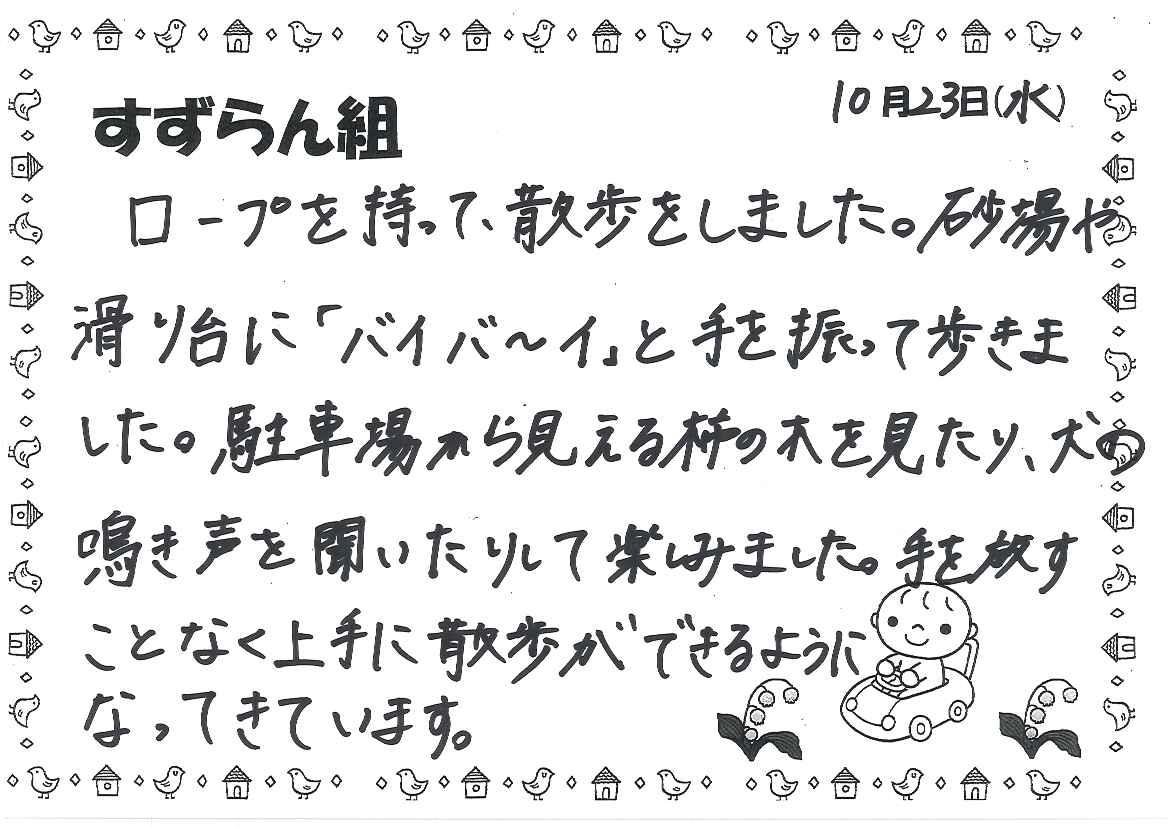 10月23日(水)
すずらん組
ロープを持って、散歩をしました。砂場や
滑り台に「バイバ〜イ」と手を振って歩きま
した。駐車場から見える柿の木を見たり、犬の
鳴き声を聞いたりして楽しみました。手を放す
ことなく上手に散歩ができるように
なってきています。